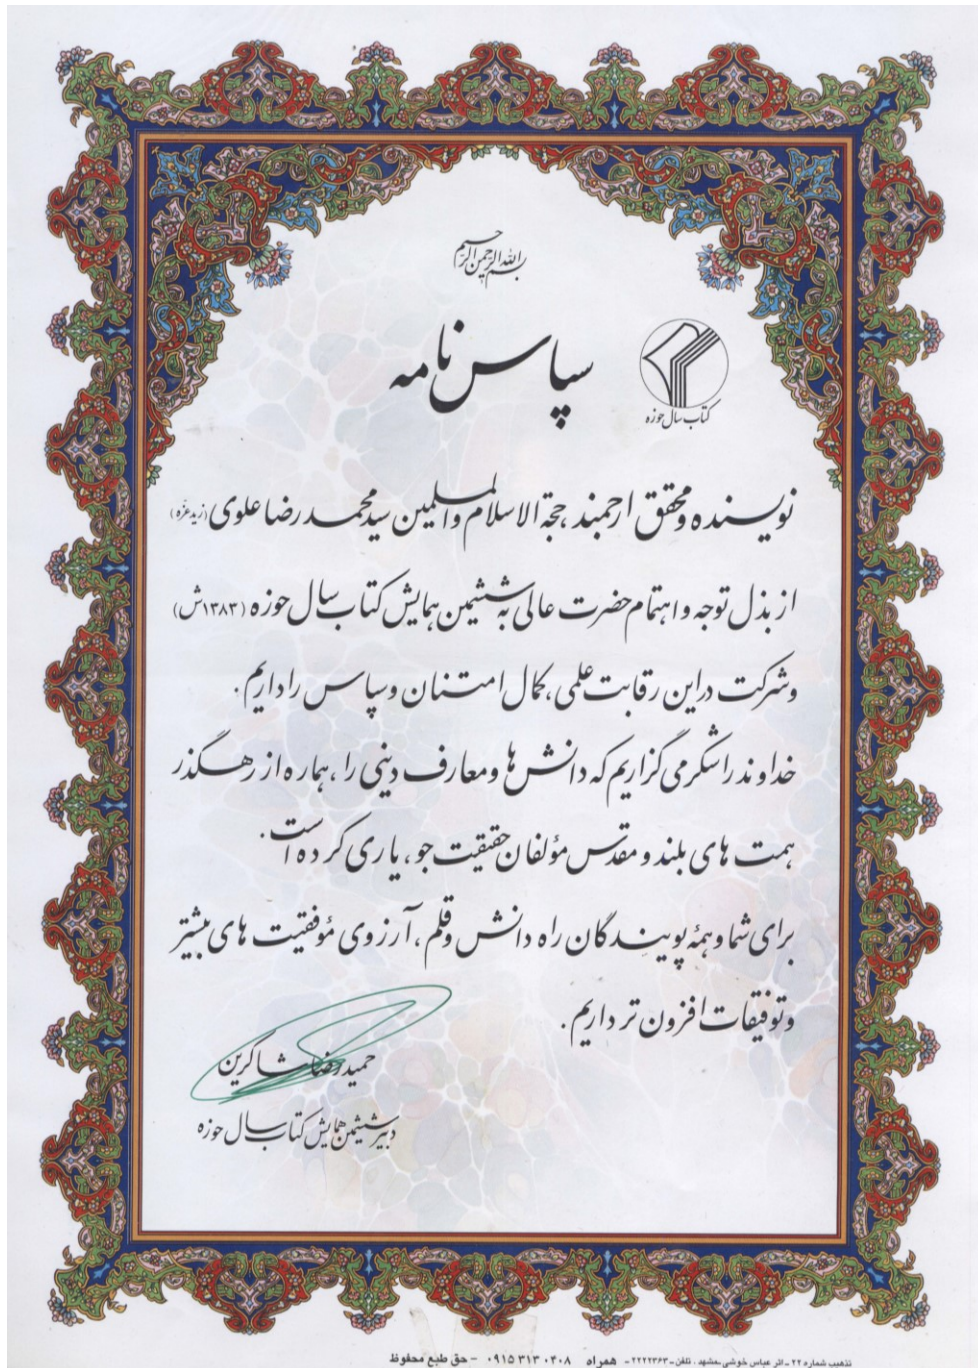 بسم الله الرحمن الرحیم
سپاس نامه
کتاب سال حوزه
نویسنده و محقق ارجمند، حجة الاسلام والمسلمین سید محمد رضا علوی (زید عزه)
از بذل توجه و اهتمام حضرت عالی به ششمین همایش کتاب سال حوزه (۱۳۸۳ش)
و شرکت در این رقابت علمی، کمال امتنان و سپاس را داریم.
خداوند را شکر می گزاریم که دانش ها و معارف دینی را، هماره از رهگذر
همت های بلند و مقدس مؤلفان حقیقت جو، یاری کرده است.
برای شما و همهٔ پویندگان راه دانش و قلم، آرزوی مؤفقیت های بیشتر
و توفیقات افزون تر داریم.
حمید رضا شاکرین
دبیر ششمین همایش کتاب سال حوزه
تذهیب شماره ۲۲ - اثر عباس خوشی - مشهد - تلفن - ۲۲۲۲۳۶۳ - همراه ۰۹۱۵ ۳۱۳ ۰۴۰۸ - حق طبع محفوظ